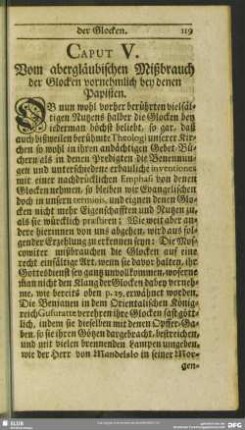 der Glocken. 119
CAPUT V.
Vom abergläubischen Mißbrauch
der Glocken vornehmlich bey denen
Papisten.
OB nun wohl vorher berührten vielfäl-
tigen Nutzens halber die Glocken bey
iederman höchst beliebt, so gar, daß
auch bißweilen berühmte Theologi unserer Kir-
chen so wohl in ihren andächtigen Gebet-Bü-
chern als in denen Predigten die Benennun-
gen und unterschiedene erbauliche inventiones
mit einer nachdrücklichen Emphasi von denen
Glocken nehmen, so bleiben wir Evangelischen
doch in unsern terminis, und eignen denen Glo-
cken nicht mehr Eigenschafften und Nutzen zu,
als sie würcklich præstiren: Wie weit aber an-
dere hierinnen von uns abgehen, wir daus fol-
gender Erzehlung zu erkennen seyn: Die Mos-
cowiter mißbrauchen die Glocken auf eine
recht einfältige Art, wenn sie davor halten, ihr
Gottesdienst sey gantz unvollkommen, woferne
man nicht den Klang der Glocken dabey verneh-
me, wie bereits oben p. 29. erwähnet worden.
Die Benjanen in dem Orientalischen König-
reich Gusuratta verehren ihre Glocken fast gött-
lich, indem sie dieselben mit denen Opffer-Ga-
ben, so sie ihren Götzen dargebracht, bestreichen,
und mit vielen brennenden Lampen umgeben,
wie der Herr von Mandelslo in seiner Mor-
gen-